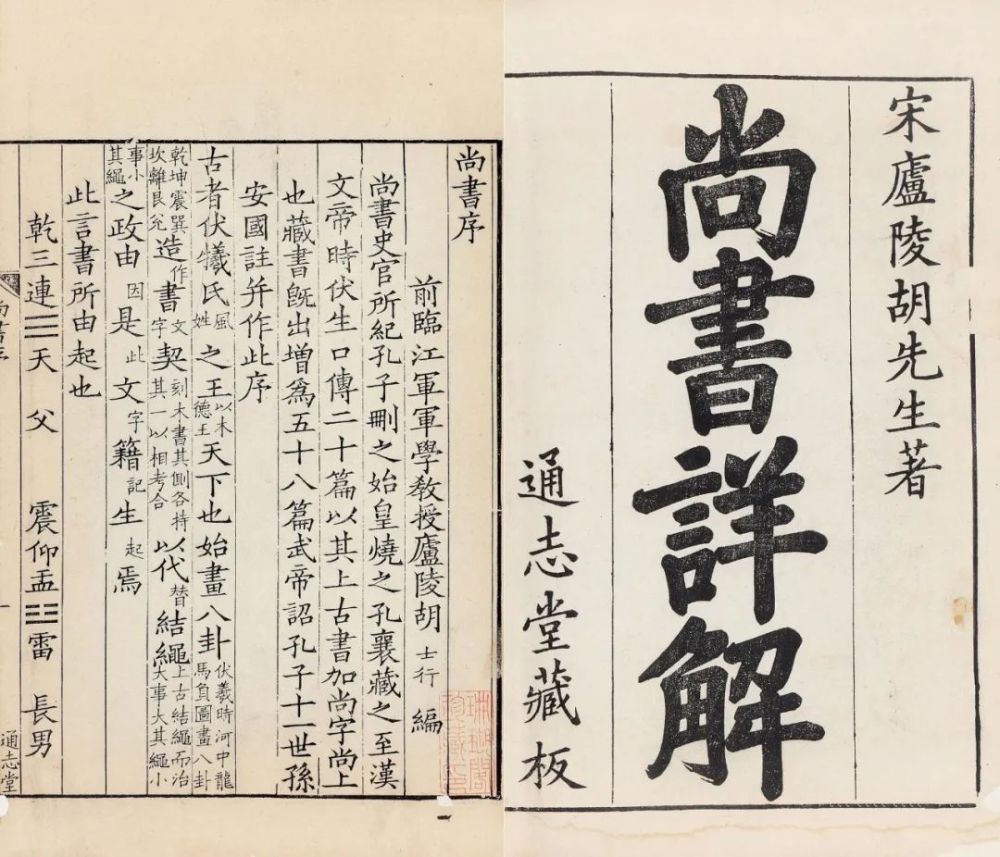 宋廬陵胡先生著
尚書詳解
通志堂藏板
尚書序
前臨江軍軍學教授廬陵胡 士行 編
尚書史官所紀孔子刪之始皇燒之孔襄藏之至漢
文帝時伏生口傳二十篇以其上古書加尚字尚上
也藏書旣出增爲五十八篇武帝詔孔子十一世孫
安國註并作此序
古者伏犧氏風姓之王以木德王天下也始畫八卦伏羲時河中龍馬負圖畫八卦
乾坤震巽坎離艮兌造作書文字契刻木書其側各持其一以相考合以代替結繩上古結繩而治大事大其繩小
事小其繩之政由因是此文字籍記生起焉
此言書所由起也
乾三連☰天 父 震仰盂☳雷 長男
通志堂